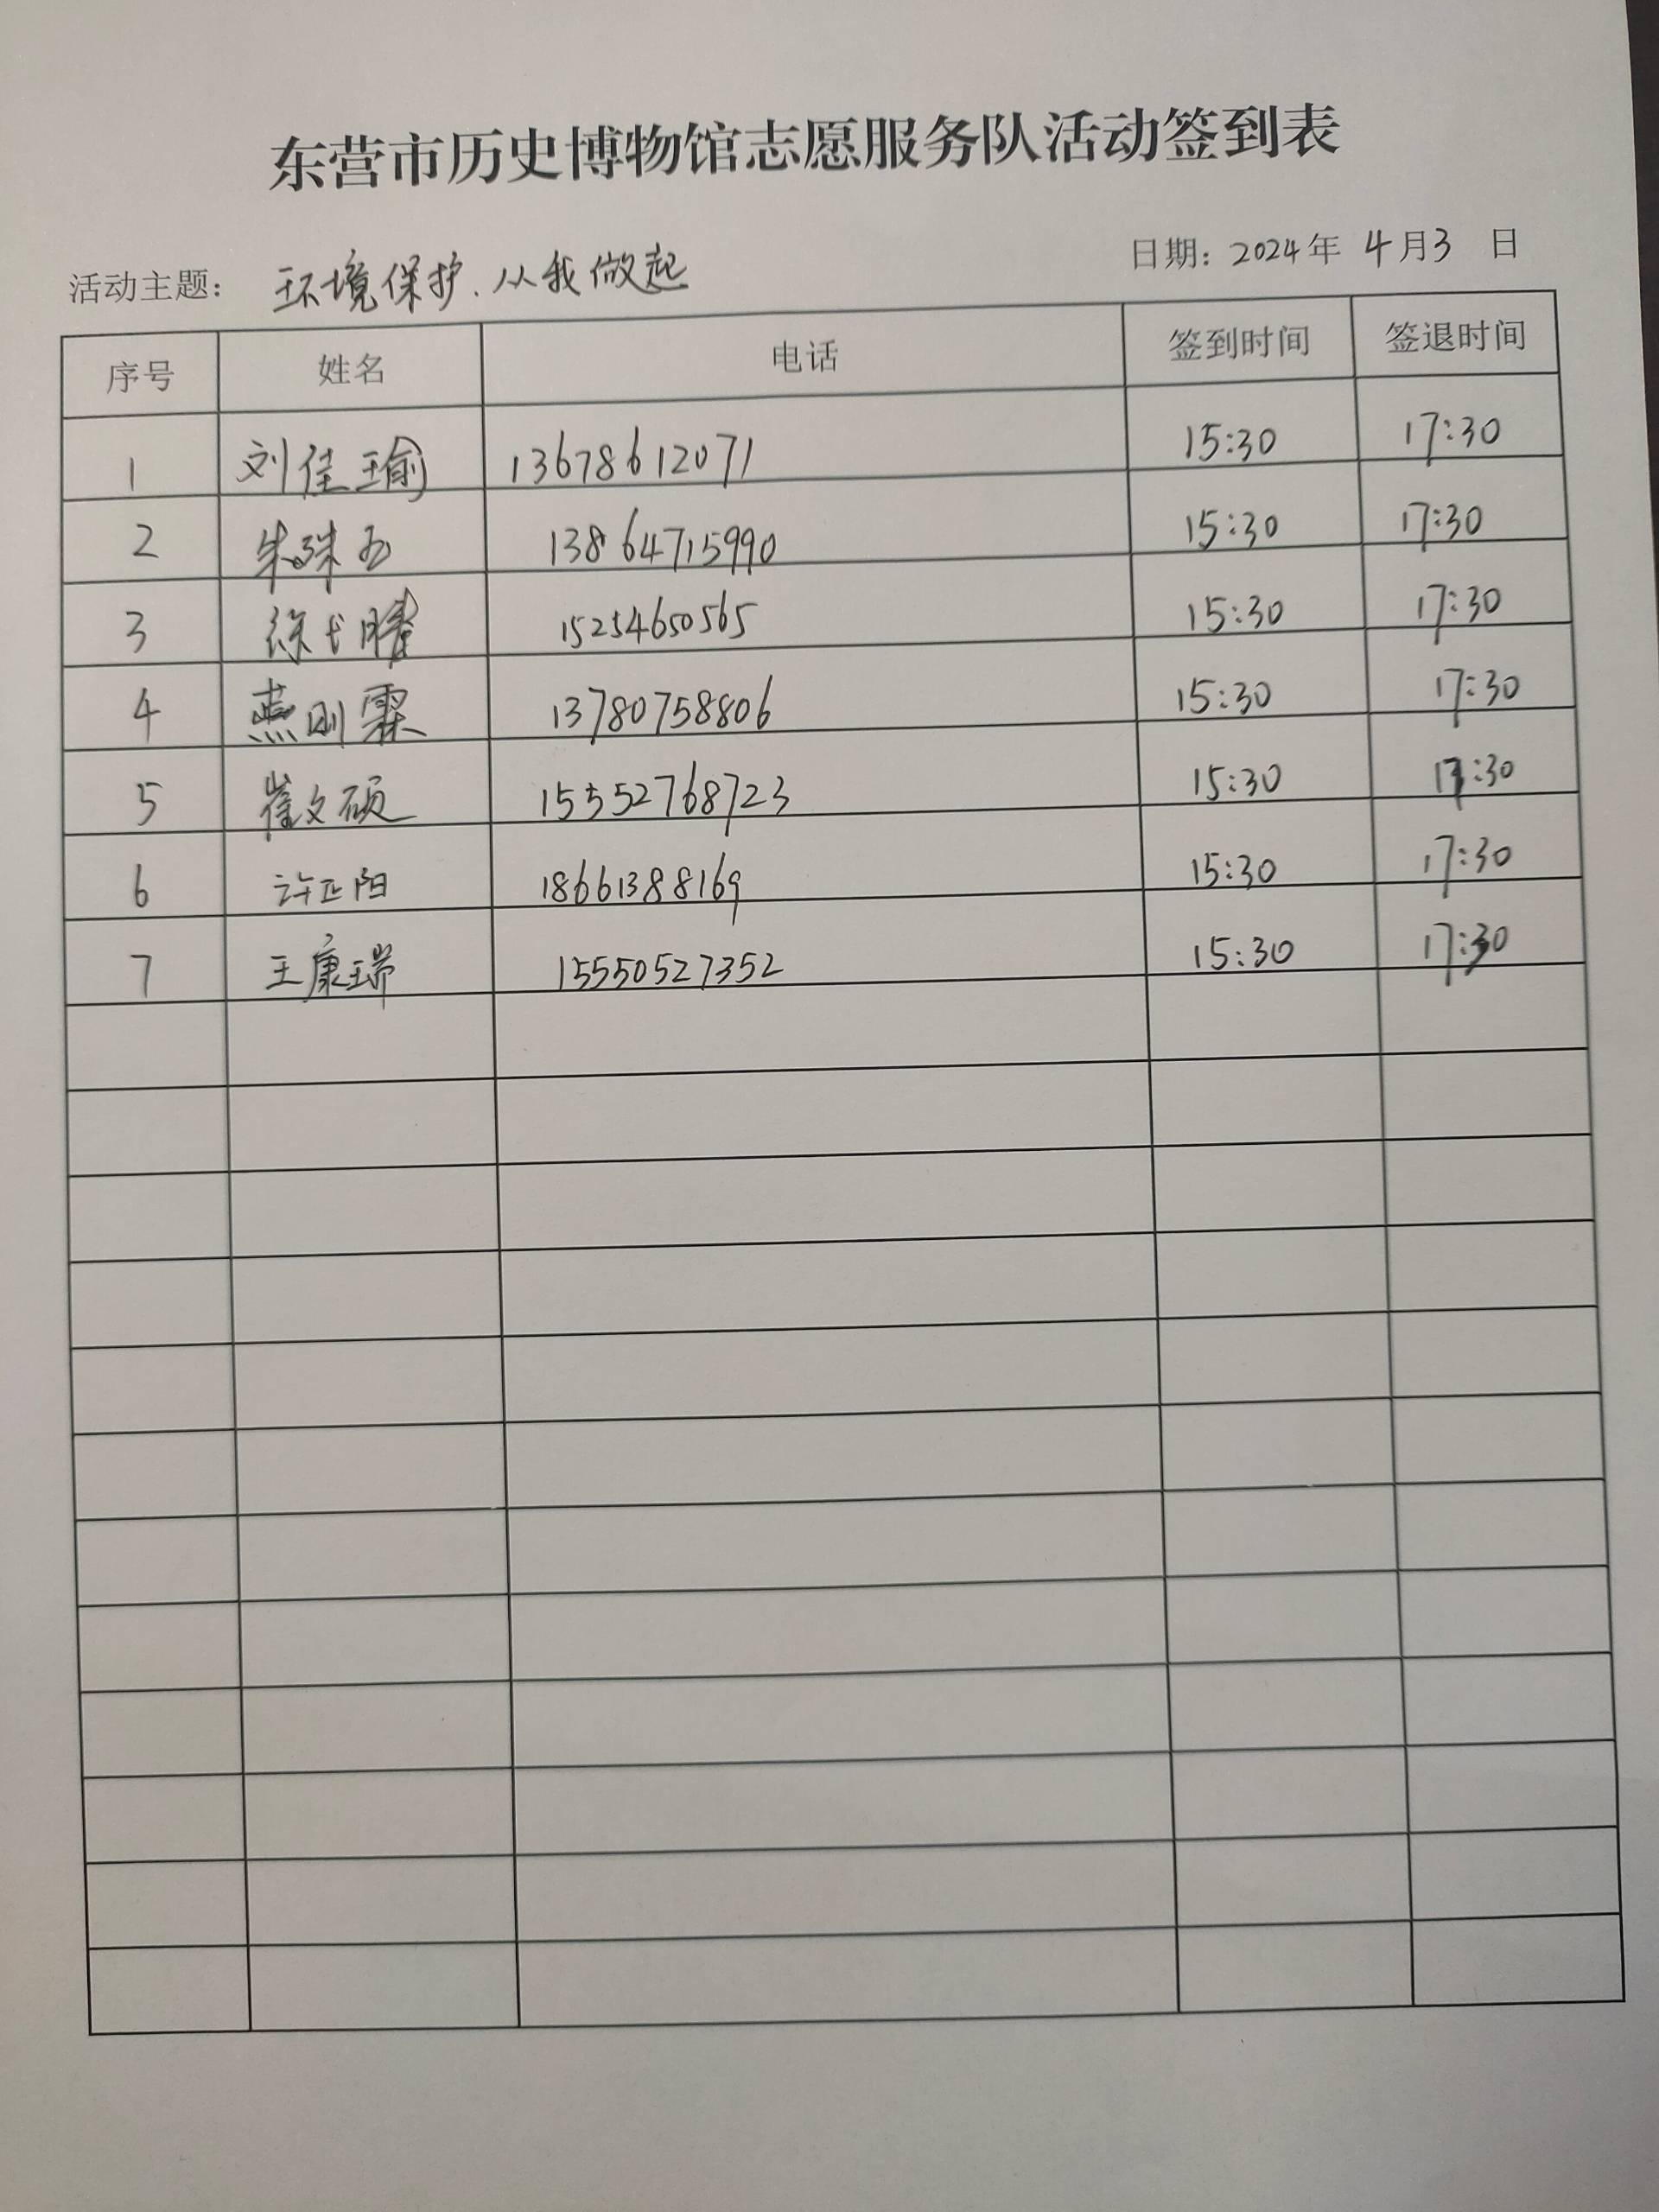 东营市历史博物馆志愿服务队活动签到表
活动主题: 环境保护.从我做起 日期: 2024年 4月3 日
序号 姓名 电话 签到时间 签退时间
1 刘佳瑜 13678612071 15:30 17:30
2 13864715990 15:30 17:30
3 15254650565 15:30 17:30
4 燕刚霖 13780758806 15:30 17:30
5 崔文硕 15552768723 15:30 17:30
6 许正阳 18661388169 15:30 17:30
7 王康瑞 15550527352 15:30 17:30